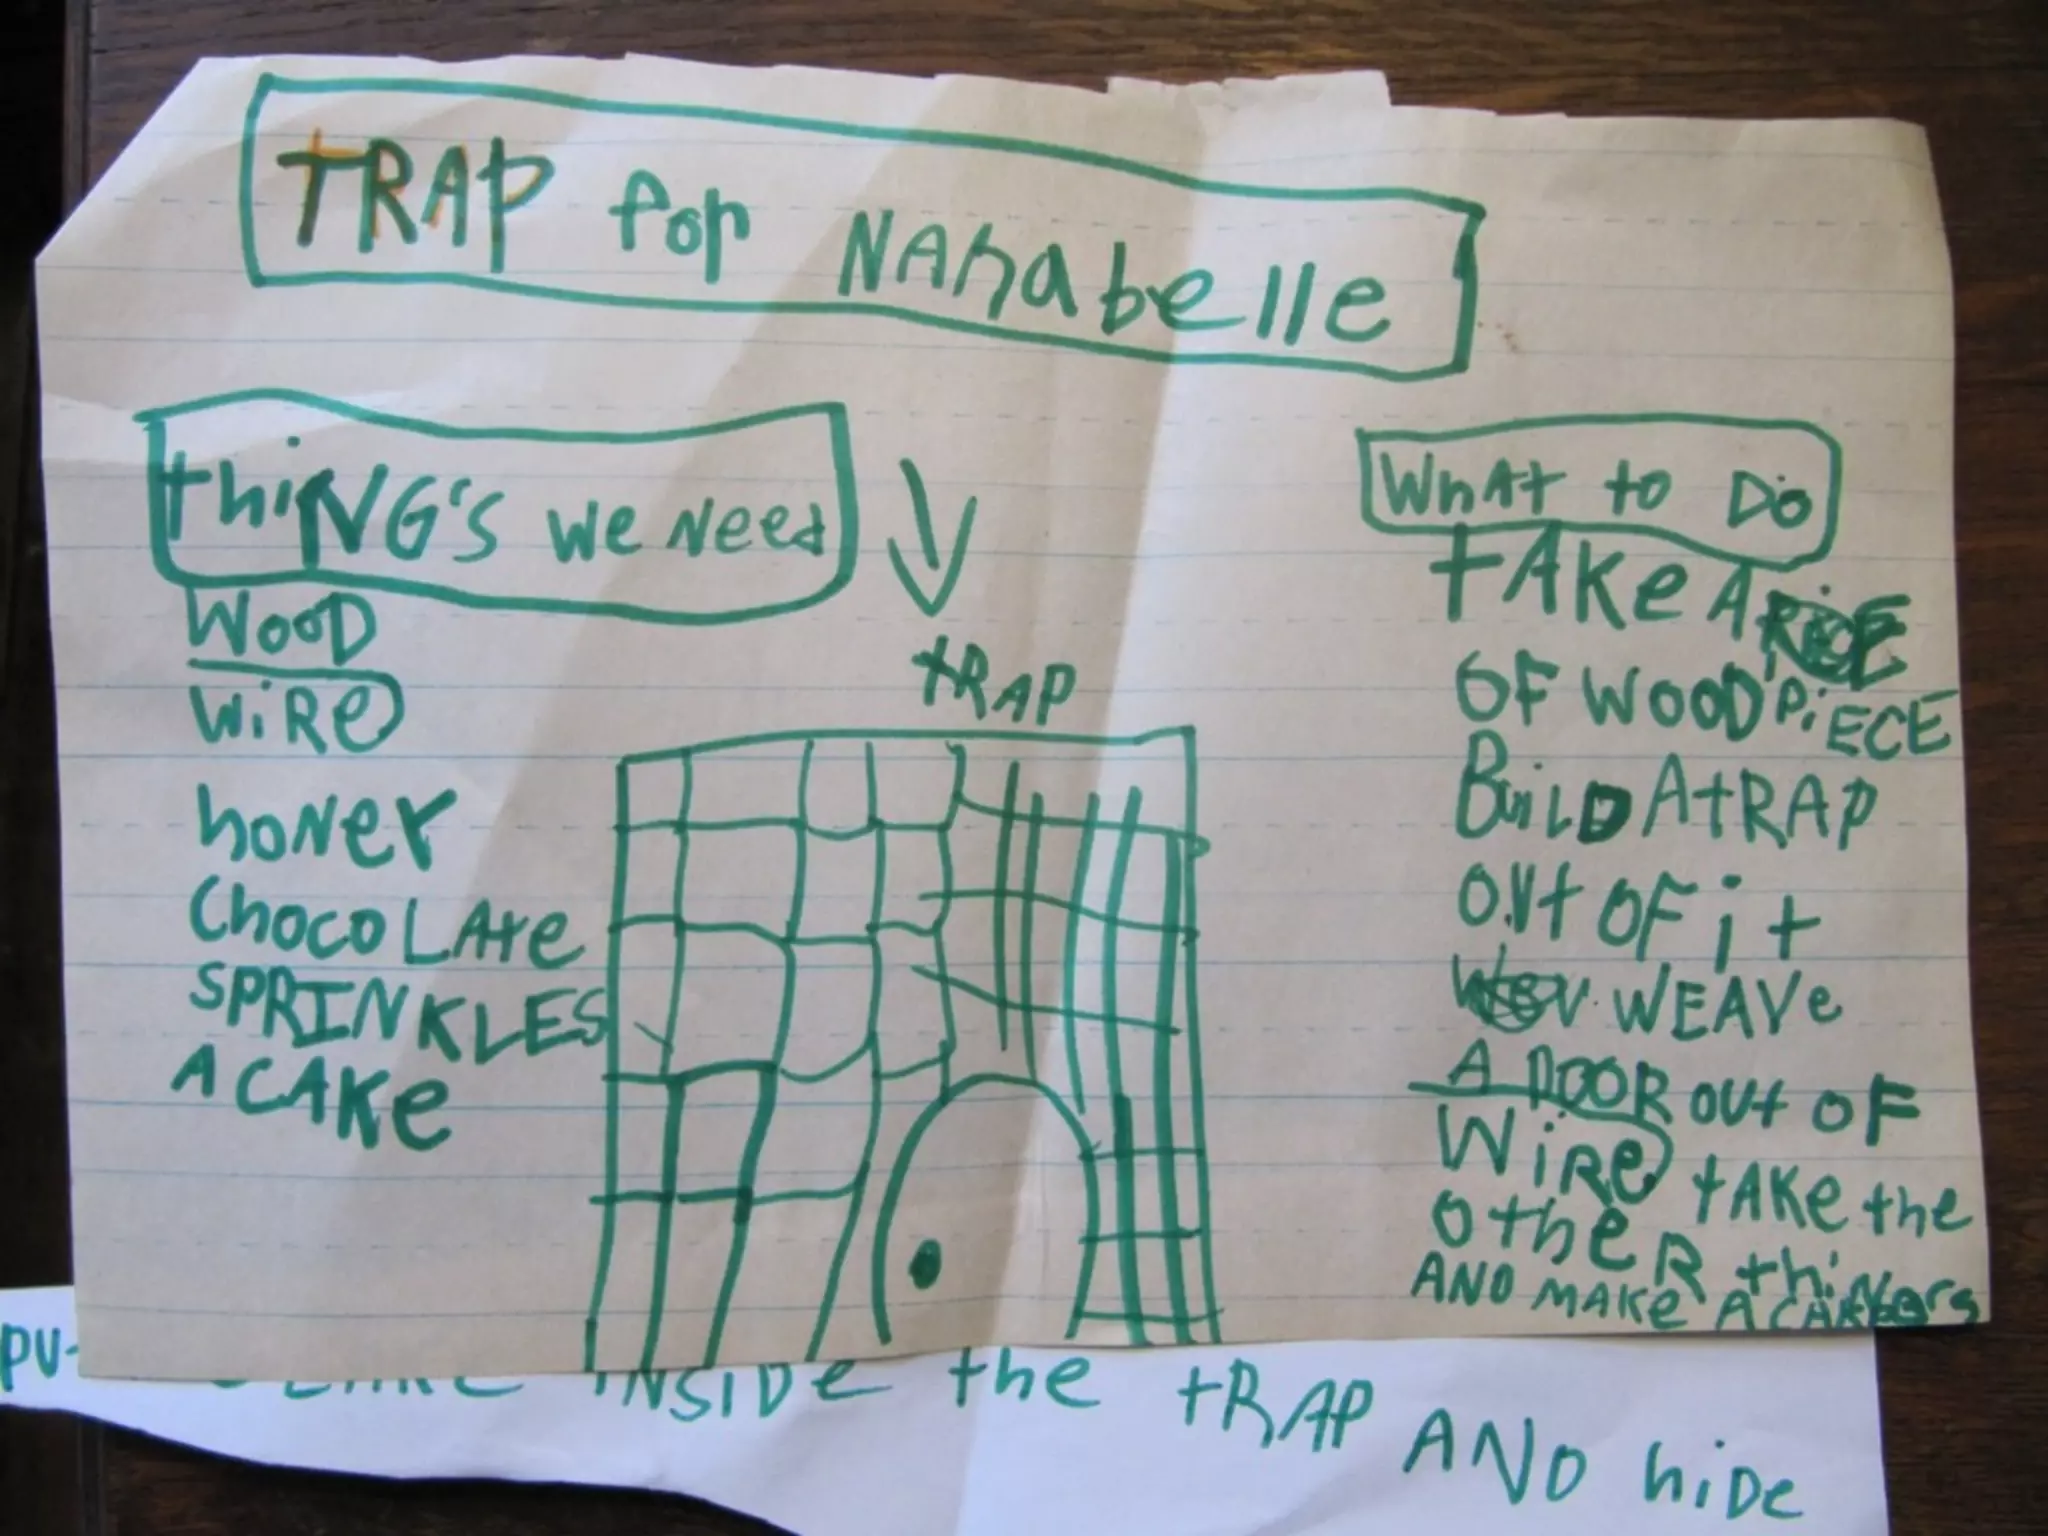 TRAP for NANabelle
thiNG'S we Need
WooD
wiRe
honey
ChocoLAte
SPRINKLES
A CAKe
tRAP
WhAt to Do
tAKe A
OF WOOD PiECE
BuiLD A tRAP
OUt OF it
WEAVe
A DOOR OUt OF
WiRe tAKe the
OtheR thiNgs
AND MAKe A CAKe
INSIDe the tRAP AND hiDe